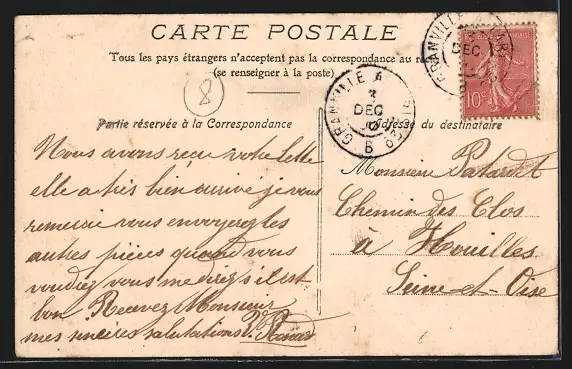 CARTE POSTALE
Tous les pays étrangers n'acceptent pas la correspondance au
(se renseigner à la poste)
8
Partie réservée à la Correspondance
Adresse du destinataire
GRANVILLE A
3
DEC
B
GRANVILLE
DEC
10c
Nous avons reçu votre lettre
elle a très bien arrivé je vous
remercie vous envoyerez les
autres pièces quand vous
voudrez vous me direz s'il est
bon Recevez Monsieur
mes sincères salutations
Monsieur
Chemin des Clos
à Houilles
Seine-et-Oise